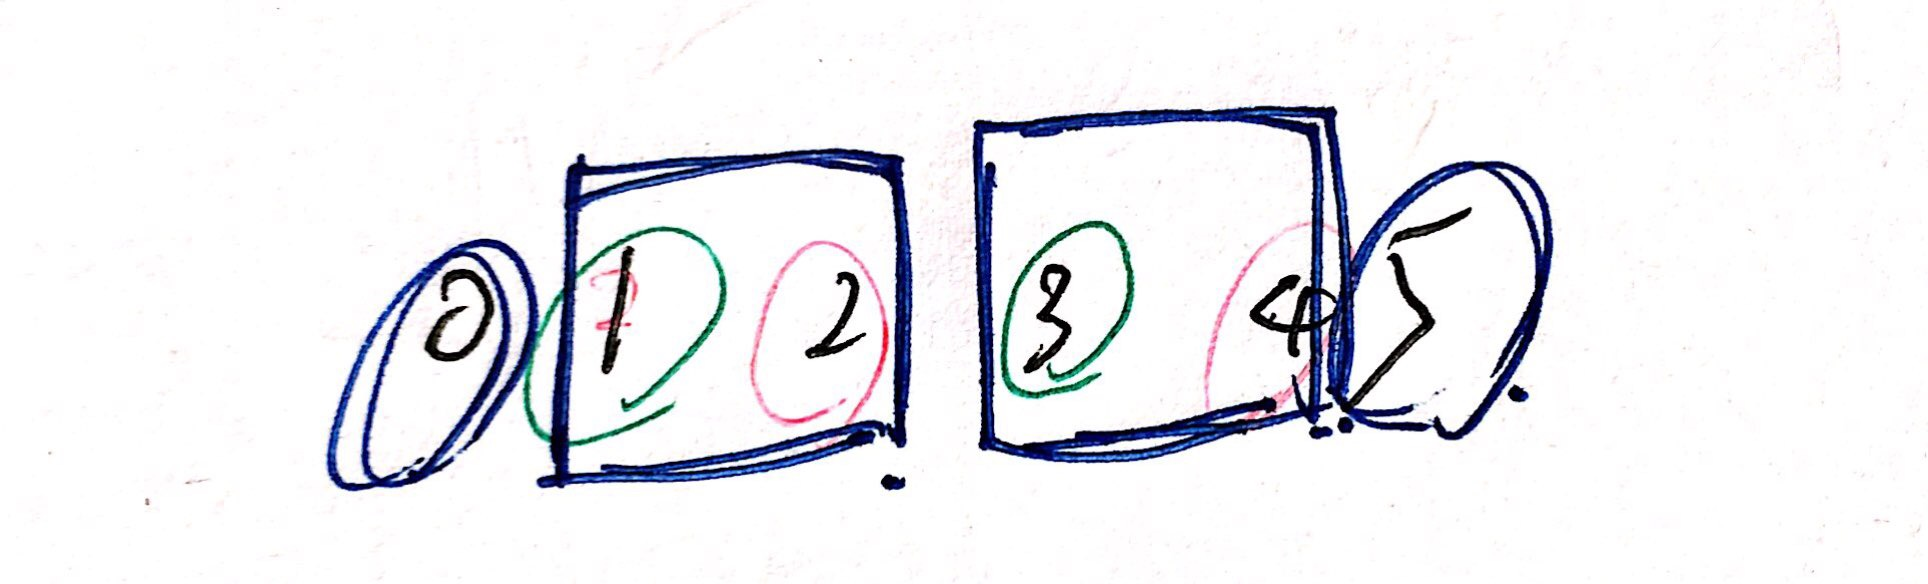 0 1 2 3 4 5